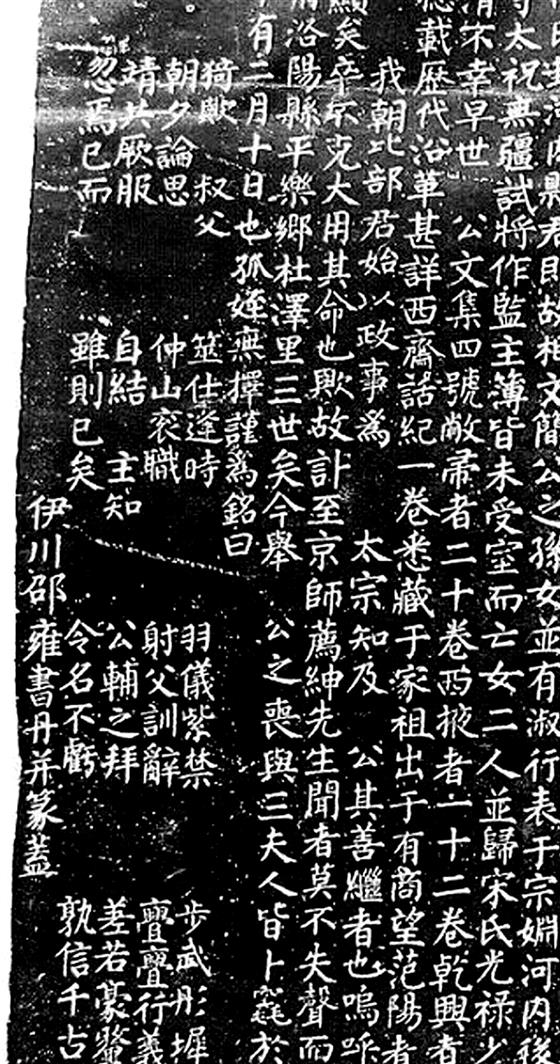 內縣君即故相文簡公之孫女並有淑行表于宗婣河內後
寺太祝無疆試將作監主簿皆未受室而亡女二人並歸宋氏光祿少
清不幸早世 公文集四號敝帚者二十卷西掖者二十二卷乾興者
總載歷代沿革甚詳西齋話紀一卷悉藏于家祖出于有商望范陽者
我朝比部君始以政事爲 太宗知及 公其善繼者也嗚呼
顯矣卒不克大用其命也歟故訃至京師薦紳先生聞者莫不失聲而
府洛陽縣平樂鄉杜澤里三世矣今舉 公之喪與三夫人皆卜窆於
有二月十日也孤姪無擇謹爲銘曰
猗歟 叔父 筮仕逢時 羽儀紫禁 步武彤墀
朝夕論思 仲山袞職 射父訓辭 亹亹行義
靖共厥服 自結 主知 公輔之拜 差若豪釐
忽焉已而 雖則已矣 令名不虧 孰信千古
伊川邵雍書丹并篆蓋